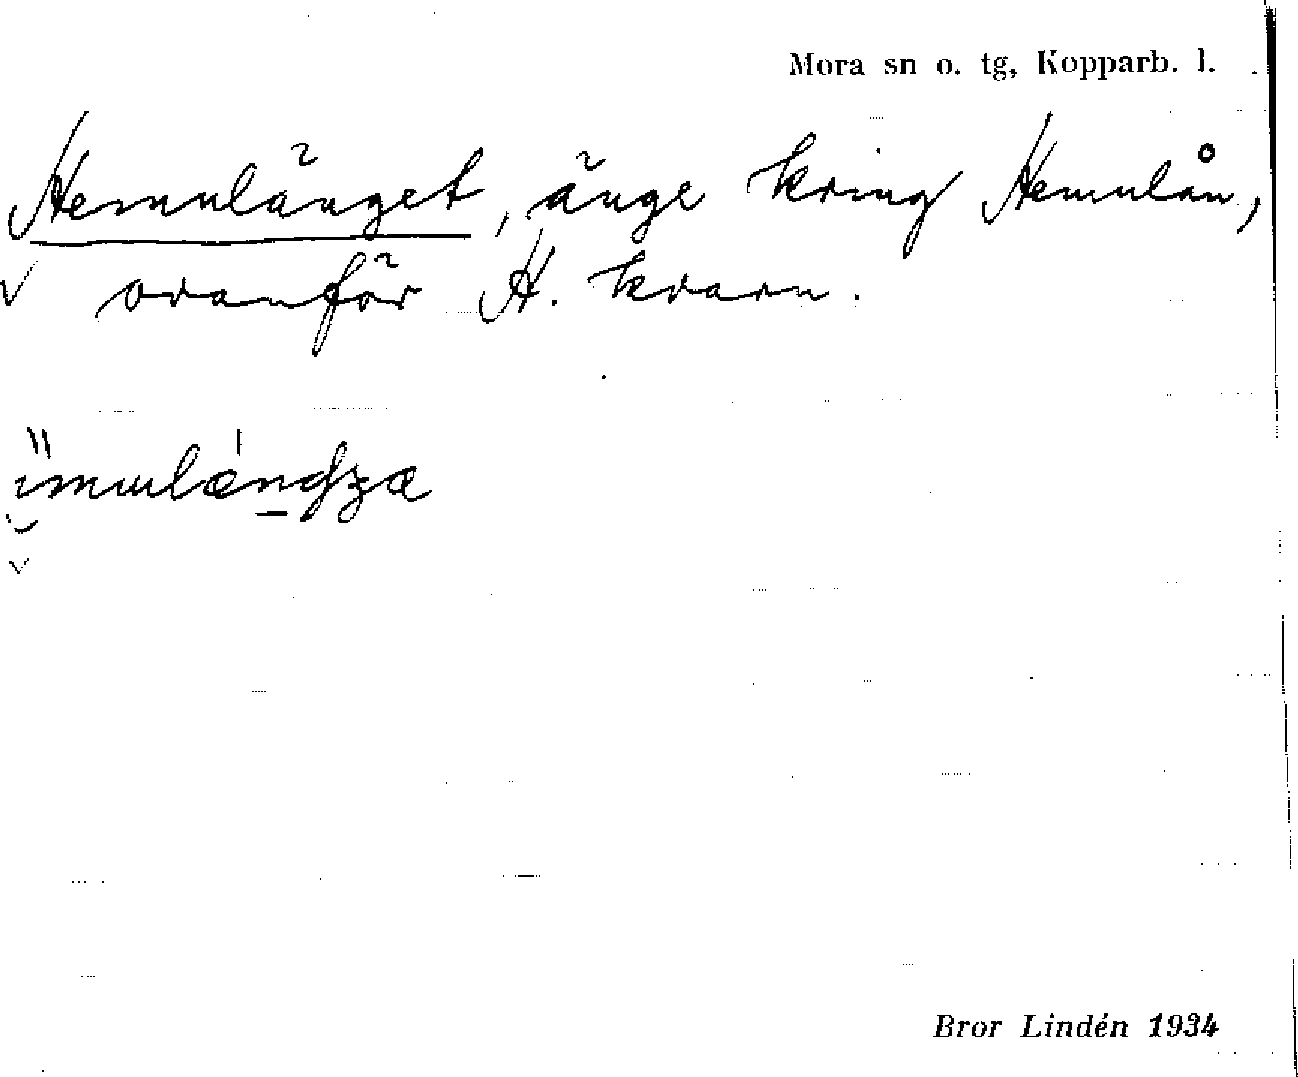 Mora sn o. tg, Kopparb. l.
Hemulänget, änge kring Hemulån,
ovanför H. kvarn.
Bror Lindén 1934